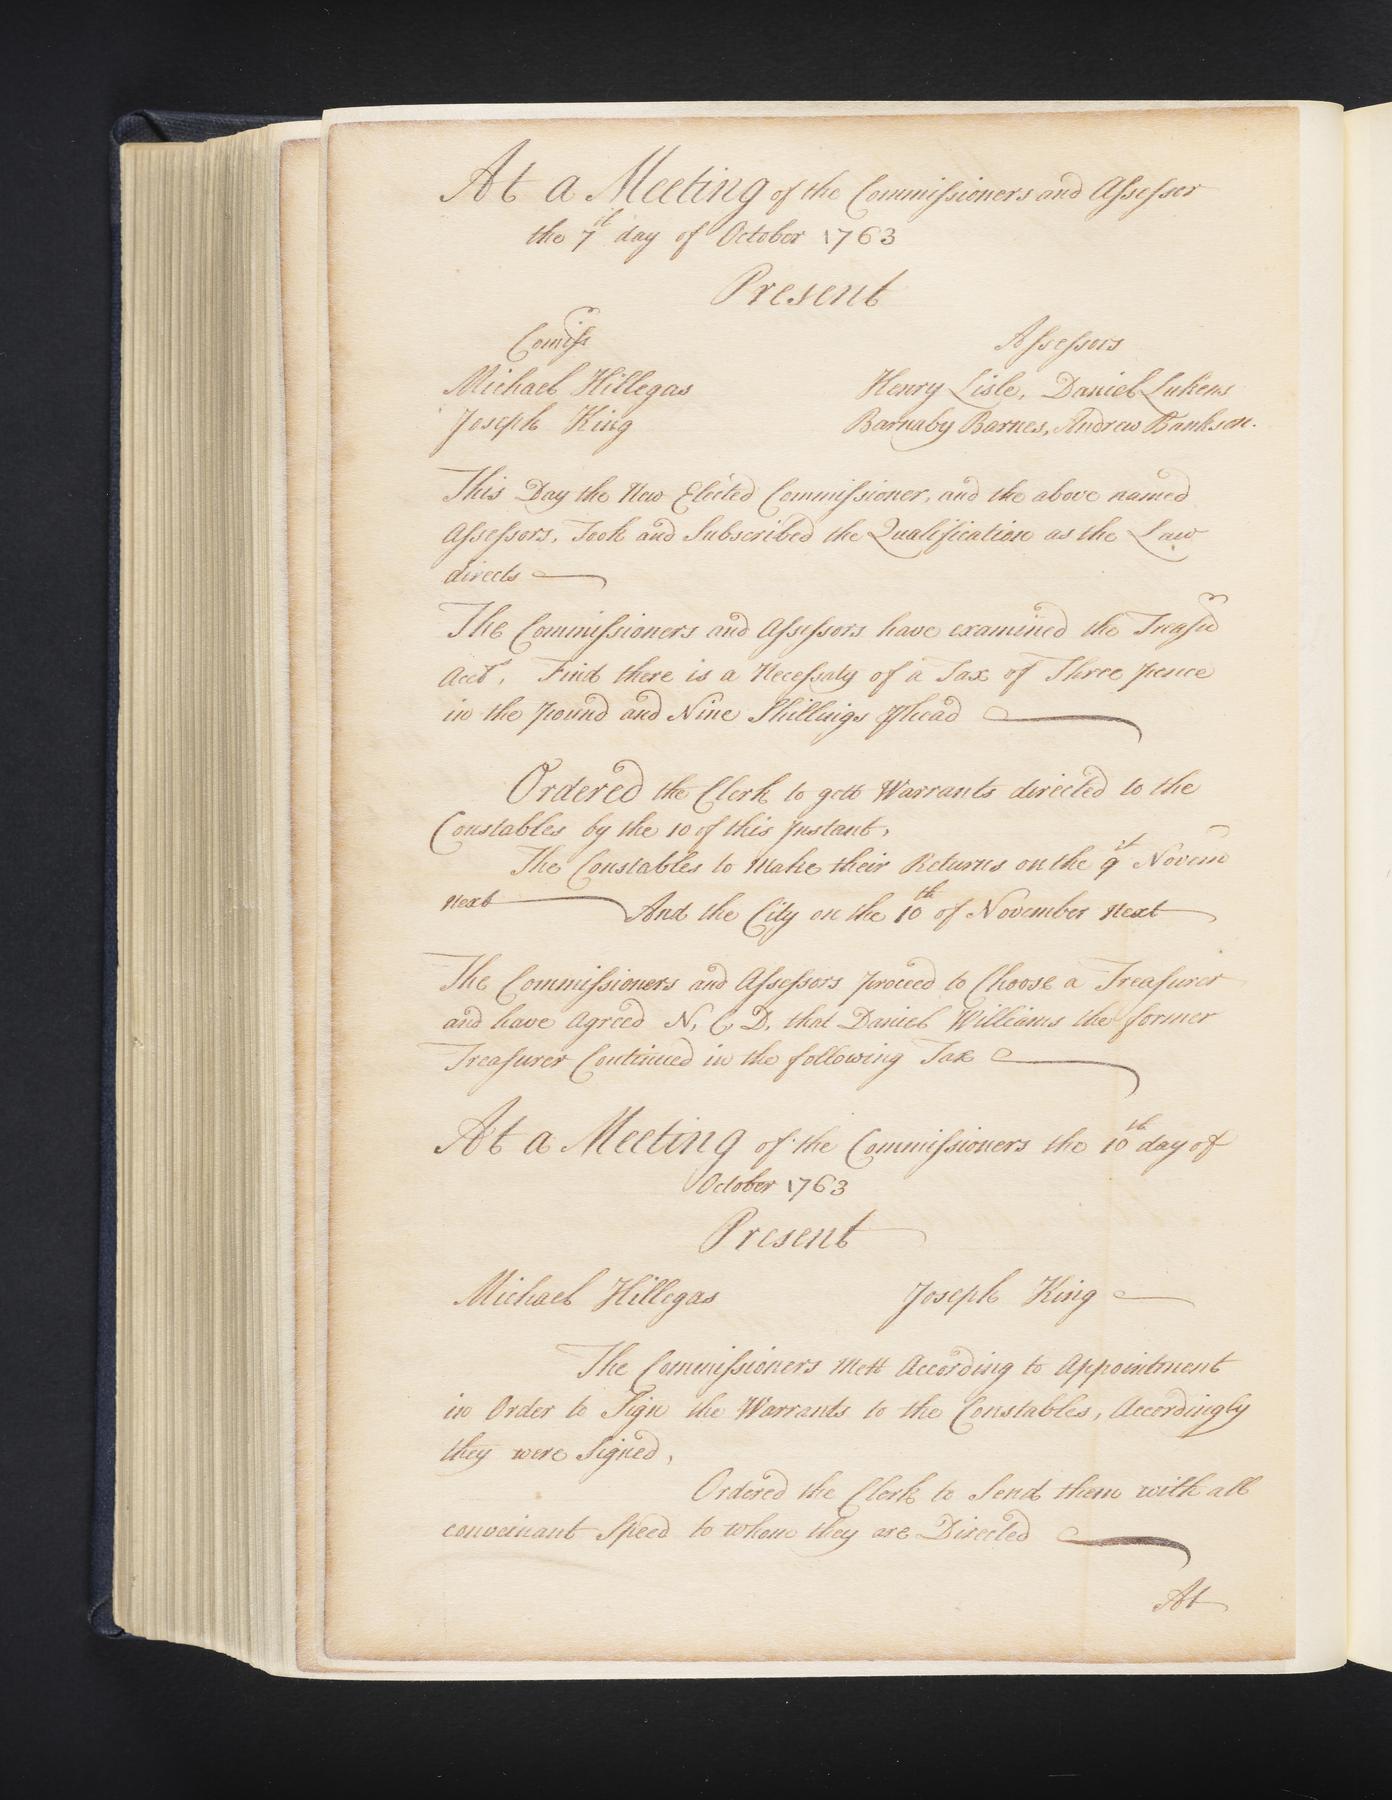 At a Meeting of the Commissioners and Assessor
the 7th day of October 1763
Present
Comiss
Assessors
Michael Hillegas
Henry Lisle, Daniel Lukens
Joseph King
Barnaby Barnes, Andrew Bankson.
This Day the New Elected Commissioner, and the above named
Assessors, Took and Subscribed the Qualification as the Law
directs
The Commissioners and Assessors have examined the Treasu
Acct, Find there is a Necessaty of a Tax of Three pence
in the pound and Nine Shillings ⅌ head
Ordered the Clerk to gett Warrants directed to the
Constables by the 10 of this Instant,
The Constables to Make their Returns on the 9th Novem
next
And the City on the 10th of November next
The Commissioners and Assessors proceed to Choose a Treasurer
and have Agreed N, C, D, that Daniel Williams the former
Treasurer Continued in the following Tax
At a Meeting of the Commissioners the 10th day of
October 1763
Present
Michael Hillegas Joseph King
The Commissioners Mett According to Appointment
in Order to Sign the Warrants to the Constables, Accordingly
they were Signed,
Ordered the Clerk to Send them with all
conveinant Speed to whom they are Directed
At